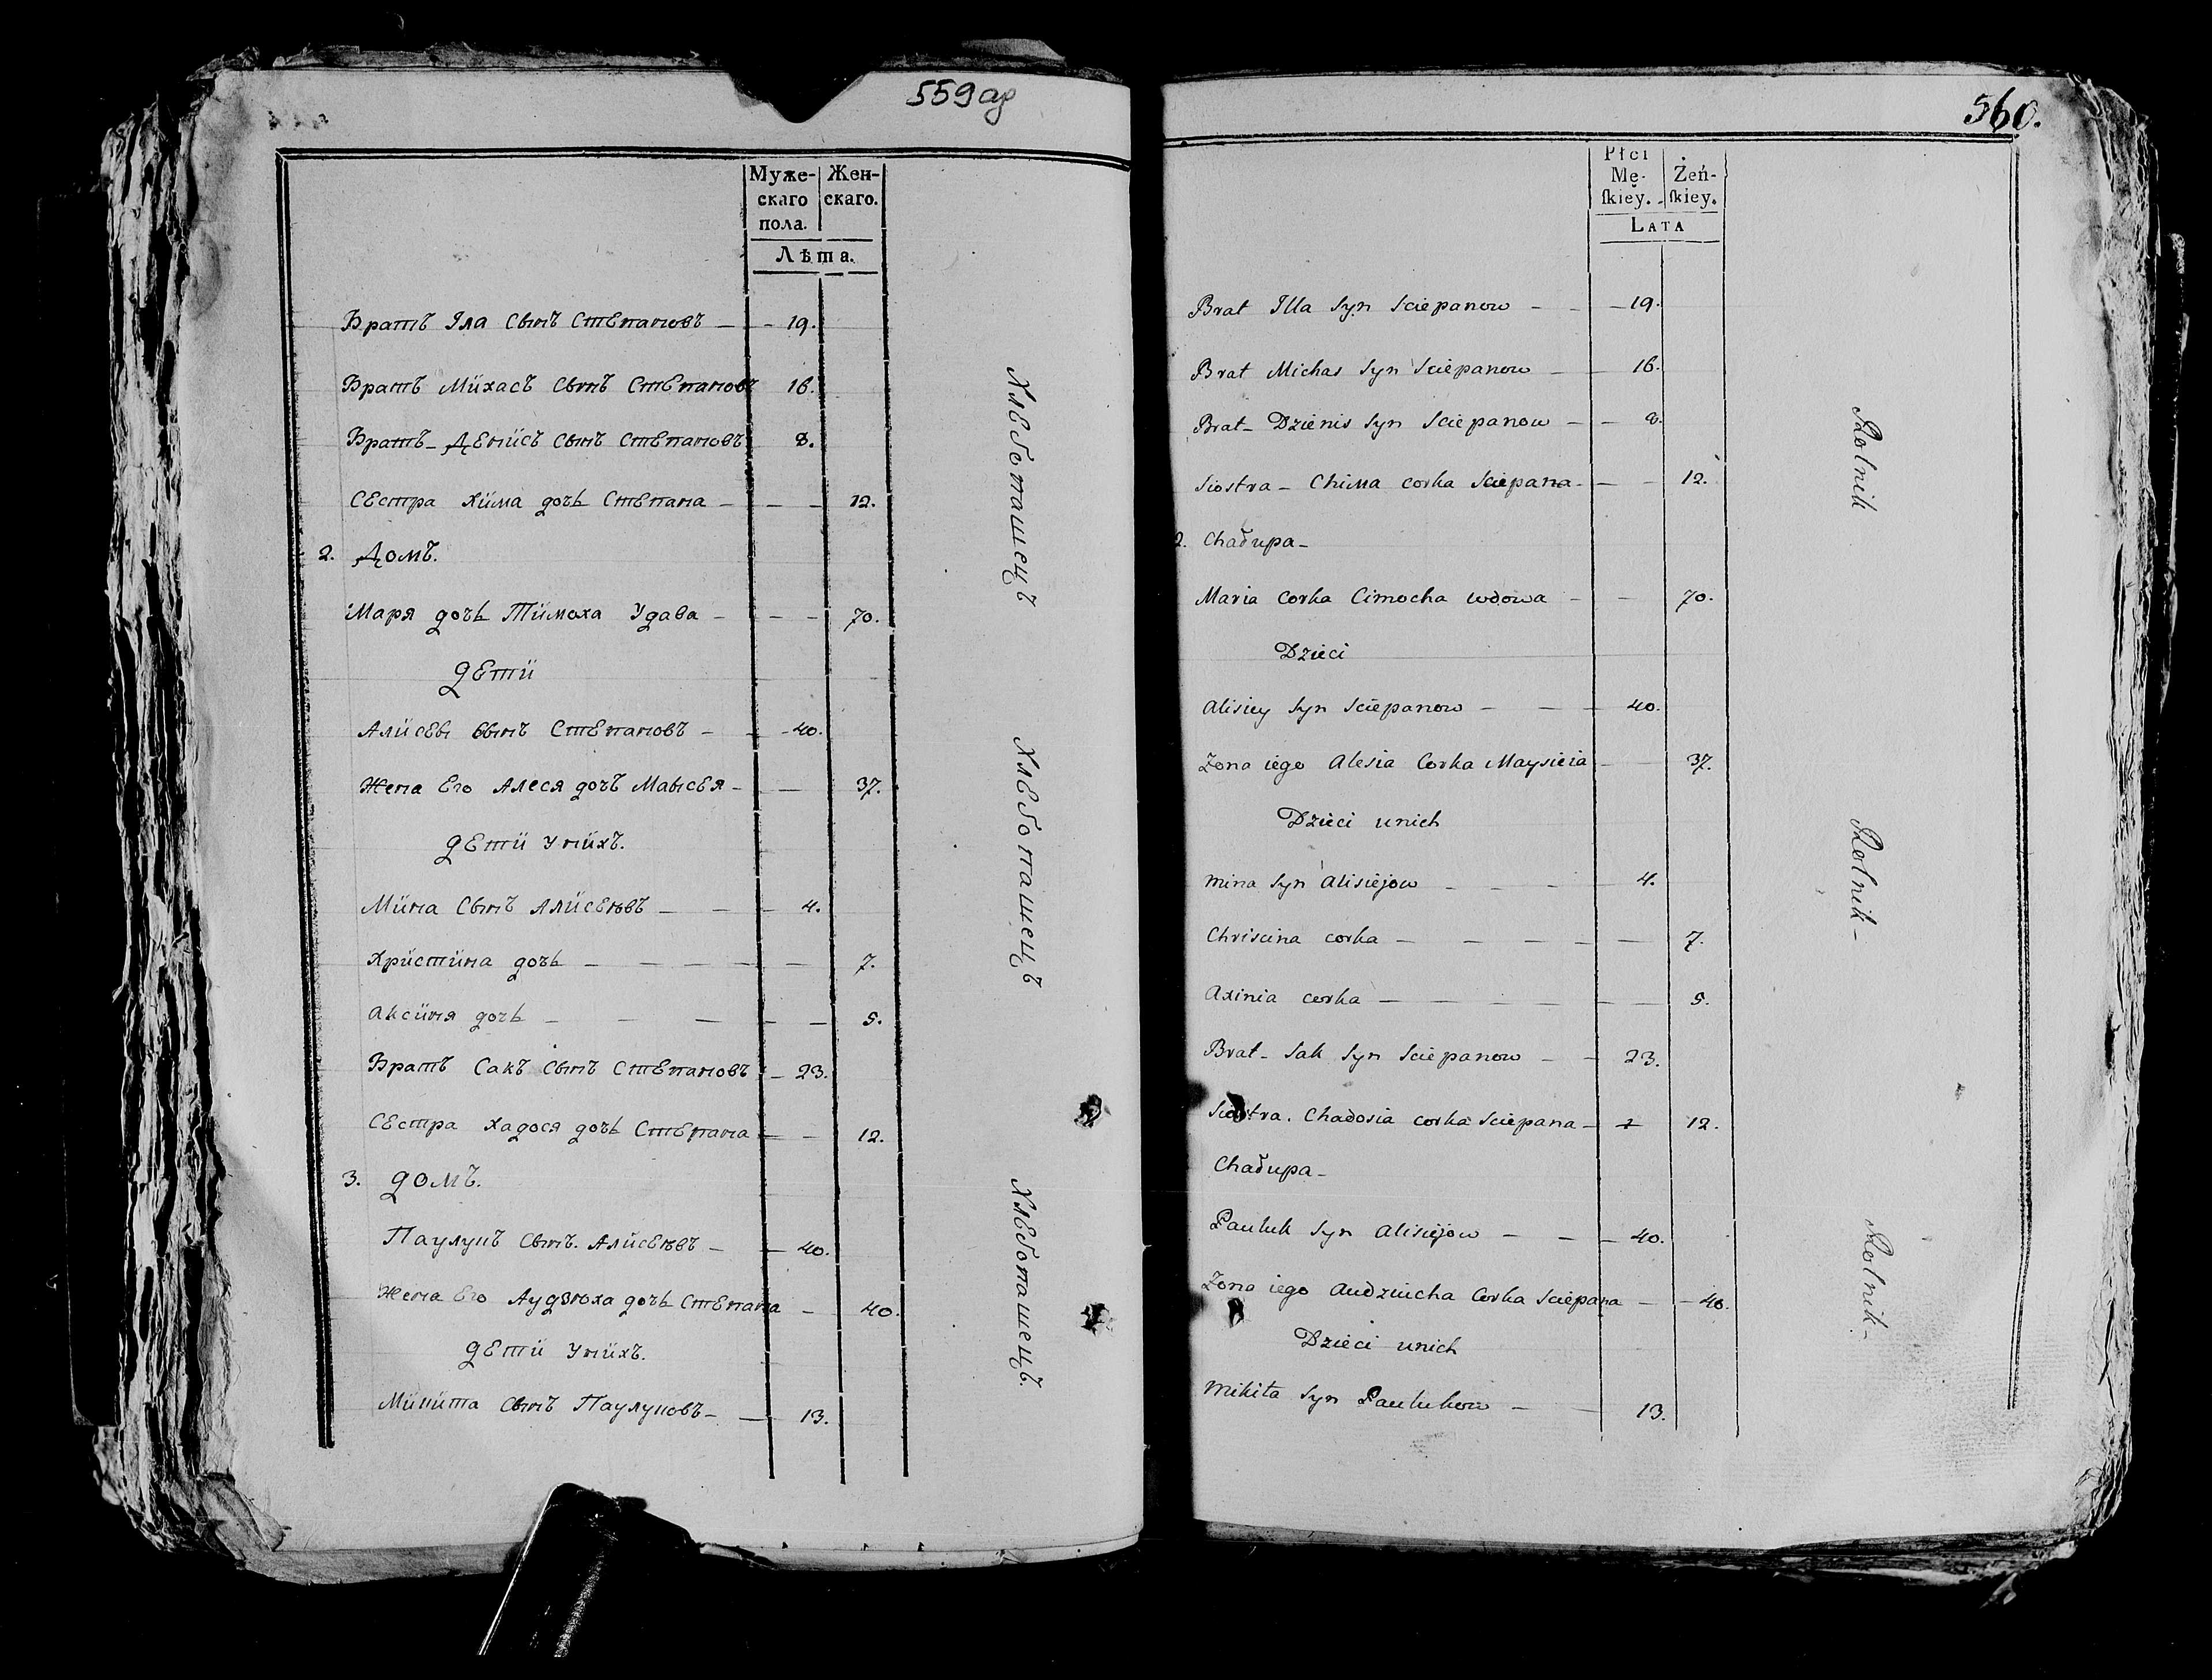 559 ар
Муже-
скаго
пола.
Жен-
скаго.
Лѣта.
Братъ Іла сынъ Степановъ — — 19.
Братъ Михасъ сынъ Степановъ 16.
Братъ — Денисъ сынъ Степановъ 8.
Сестра Хима дочь Степана — — — 12.
2. Домъ.
Маря дочь Тимоха Удава — — — 70.
дети
Алисеы сынъ Степановъ — — 40.
Жена Его Алеся дочъ Маысея — — 37.
дети Унихъ.
Мина Сынъ Алисеювъ — — — 4.
Христина дочь — — — — — 7.
Аксиня дочь — — — — — 5.
Братъ Сакъ сынъ Степановъ — 23.
Сестра Хадося дочь Степана — — 12.
3. домъ.
Паулукъ сынъ. Алисеювъ — — 40.
Жена Его Аудзюха дочь Степана — 40.
дети Унихъ.
Микита сынъ Паулуковъ — — 13.
Хлебопашецъ
Хлебопашецъ
Хлебопашецъ.
560.
Płci
Mę-
ſkiey.
Żeń-
ſkiey.
LATA
Brat Illa syn Sciepanow — — — 19.
Brat Michas syn Sciepanow — — 16.
Brat — Dzienis syn Sciepanow — — 8.
Siostra — Chima corka Sciepana — — — 12.
2. Chałupa —
Maria corka Cimocha wdowa — — 70.
Dzieci
Alisiey syn Sciepanow — — — 40.
Zona iego Alesia Corka Maysieia — — 37.
Dzieci unich
Mina syn Alisiejow — — — 4.
Chriscina corka — — — — — 7.
Axinia corka — — — — — — 5.
Brat — Sak syn Sciepanow — — 23.
Siostra. Chadosia corka Sciepana — 12.
Chałupa —
Pauluk syn Alisiejow — — — 40.
Zona iego Audziucha Corka Sciepana — — 40.
Dzieci unich
Mikita syn Paulukow — — 13.
Rolnik
Rolnik —
Rolnik —